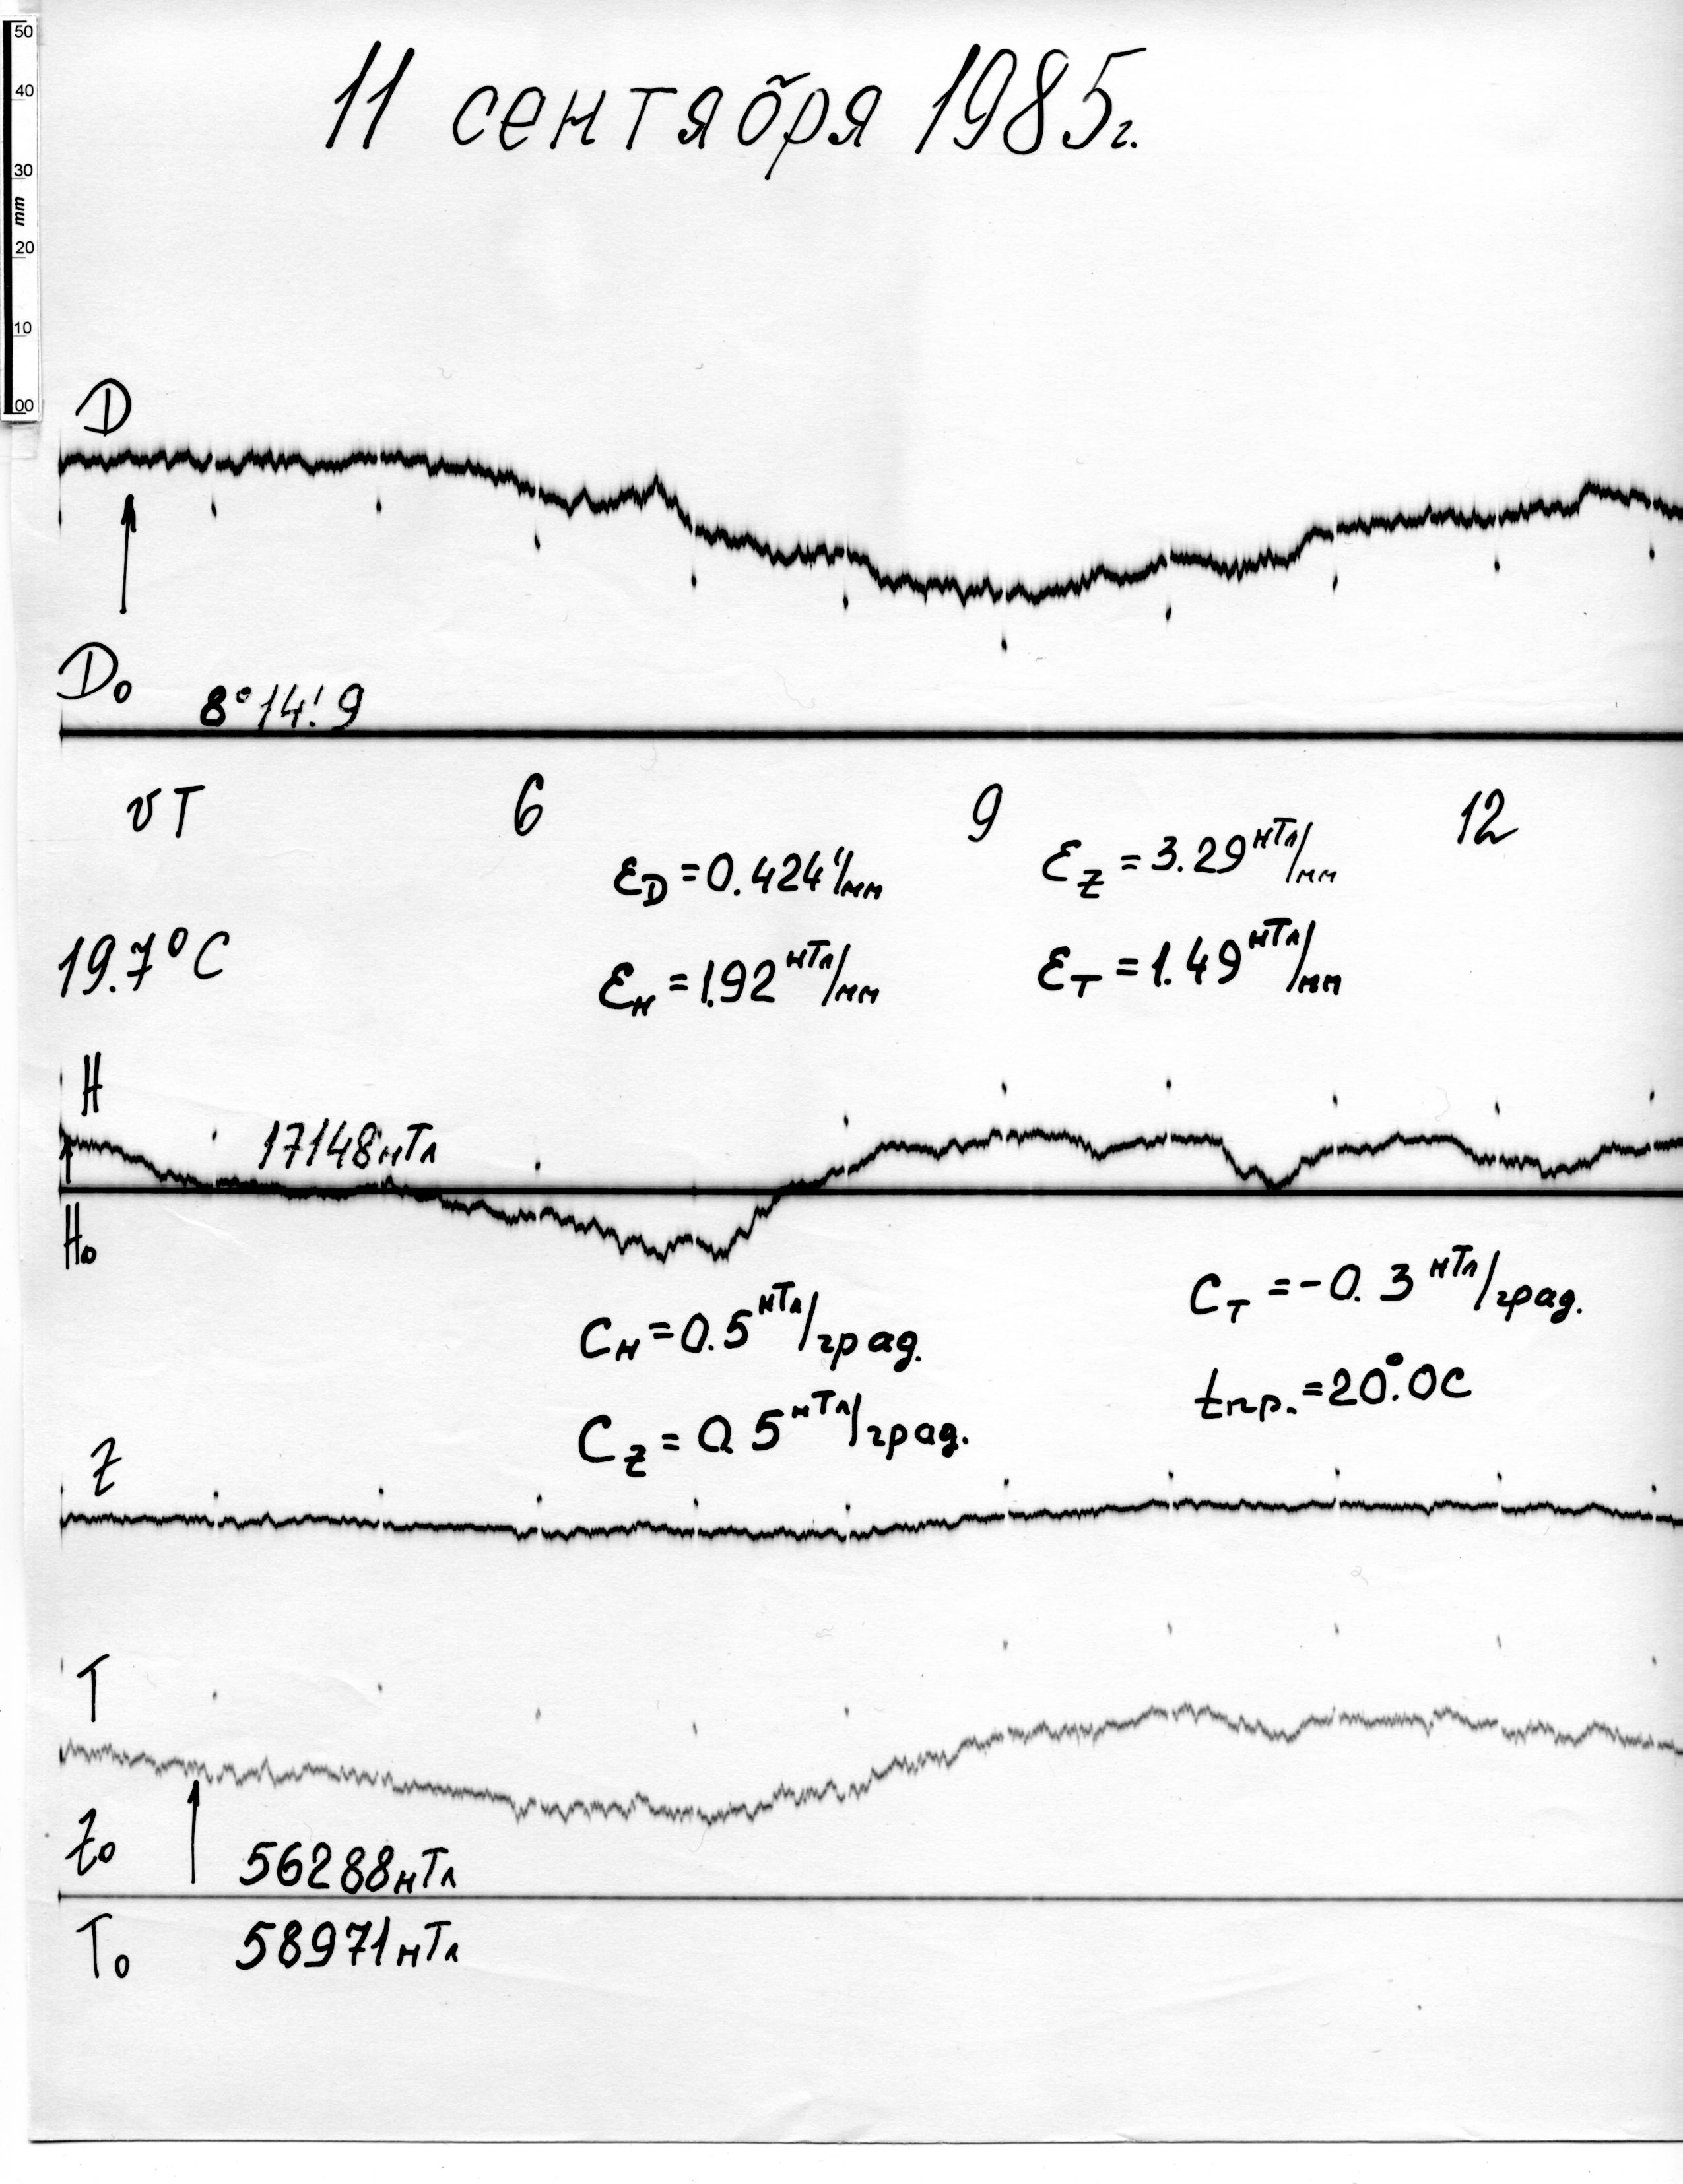 50
40
30
mm
20
10
00
11 сентября 1985г.
D
D₀ 8°14!9
UT 6 9 12
ε_D = 0.424'/мм ε_Z = 3.29 нТл/мм
19.7°C
ε_H = 1.92 нТл/мм ε_T = 1.49 нТл/мм
H
17148 нТл
H₀
C_H = 0.5 нТл/град. C_T = -0.3 нТл/град.
C_Z = 0.5 нТл/град. tпр. = 20°.0C
Z
T
Z₀ 56288 нТл
T₀ 58971 нТл